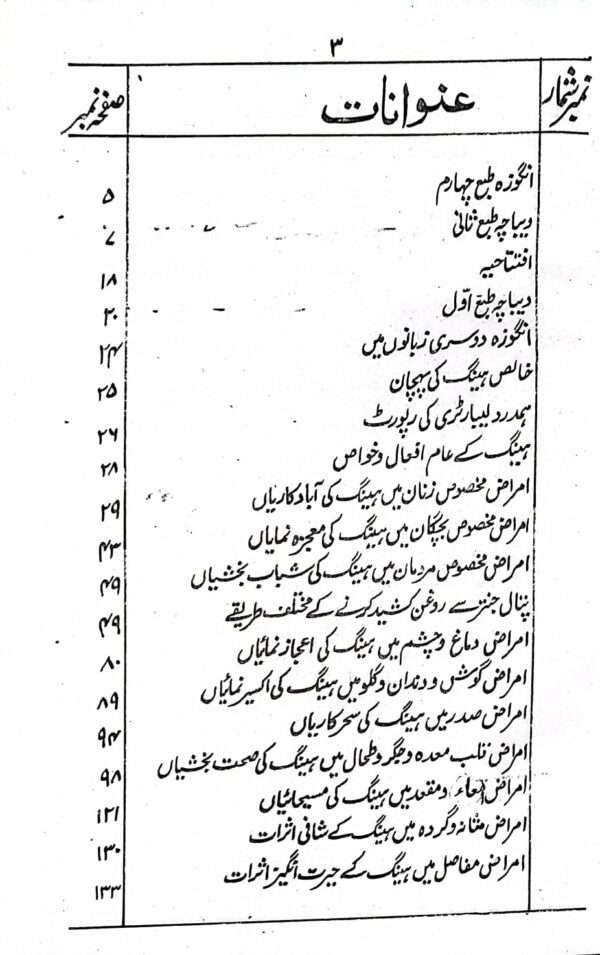 ۳
نمبر شمار عنوانات صفحہ نمبر
انگوزہ طبع چہارم ۵
دیباچہ طبع ثانی ۷
افتتاحیہ ۱۸
دیباچہ طبع اوّل ۲۰
انگوزہ دوسری زبانوں میں ۲۴
خالص ہینگ کی پہچان ۲۵
ہمدرد لیبارٹری کی رپورٹ ۲۶
ہینگ کے عام افعال و خواص ۲۸
امراض مخصوص زنان میں ہینگ کی آبادکاریاں ۲۹
امراض مخصوص بچگان میں ہینگ کی معجزہ نمایاں ۴۳
امراض مخصوص مردمان میں ہینگ کی شباب بخشیاں ۴۹
پتال جنتر سے روغن کشید کرنے کے مختلف طریقے ۴۹
امراض دماغ و چشم میں ہینگ کی اعجاز نمائیاں ۸۰
امراض گوش و دندان و گلو میں ہینگ کی اکسیر نمائیاں ۸۹
امراض صدر میں ہینگ کی سحر کاریاں ۹۴
امراض قلب معدہ و جگر و طحال میں ہینگ کی صحت بخشیاں ۹۸
امراض (امعاء) و مقعد میں ہینگ کی مسیحائیاں ۱۲۱
امراض مثانہ و گردہ میں ہینگ کے شافی اثرات ۱۳۰
امراض مفاصل میں ہینگ کے حیرت انگیز اثرات ۱۳۳